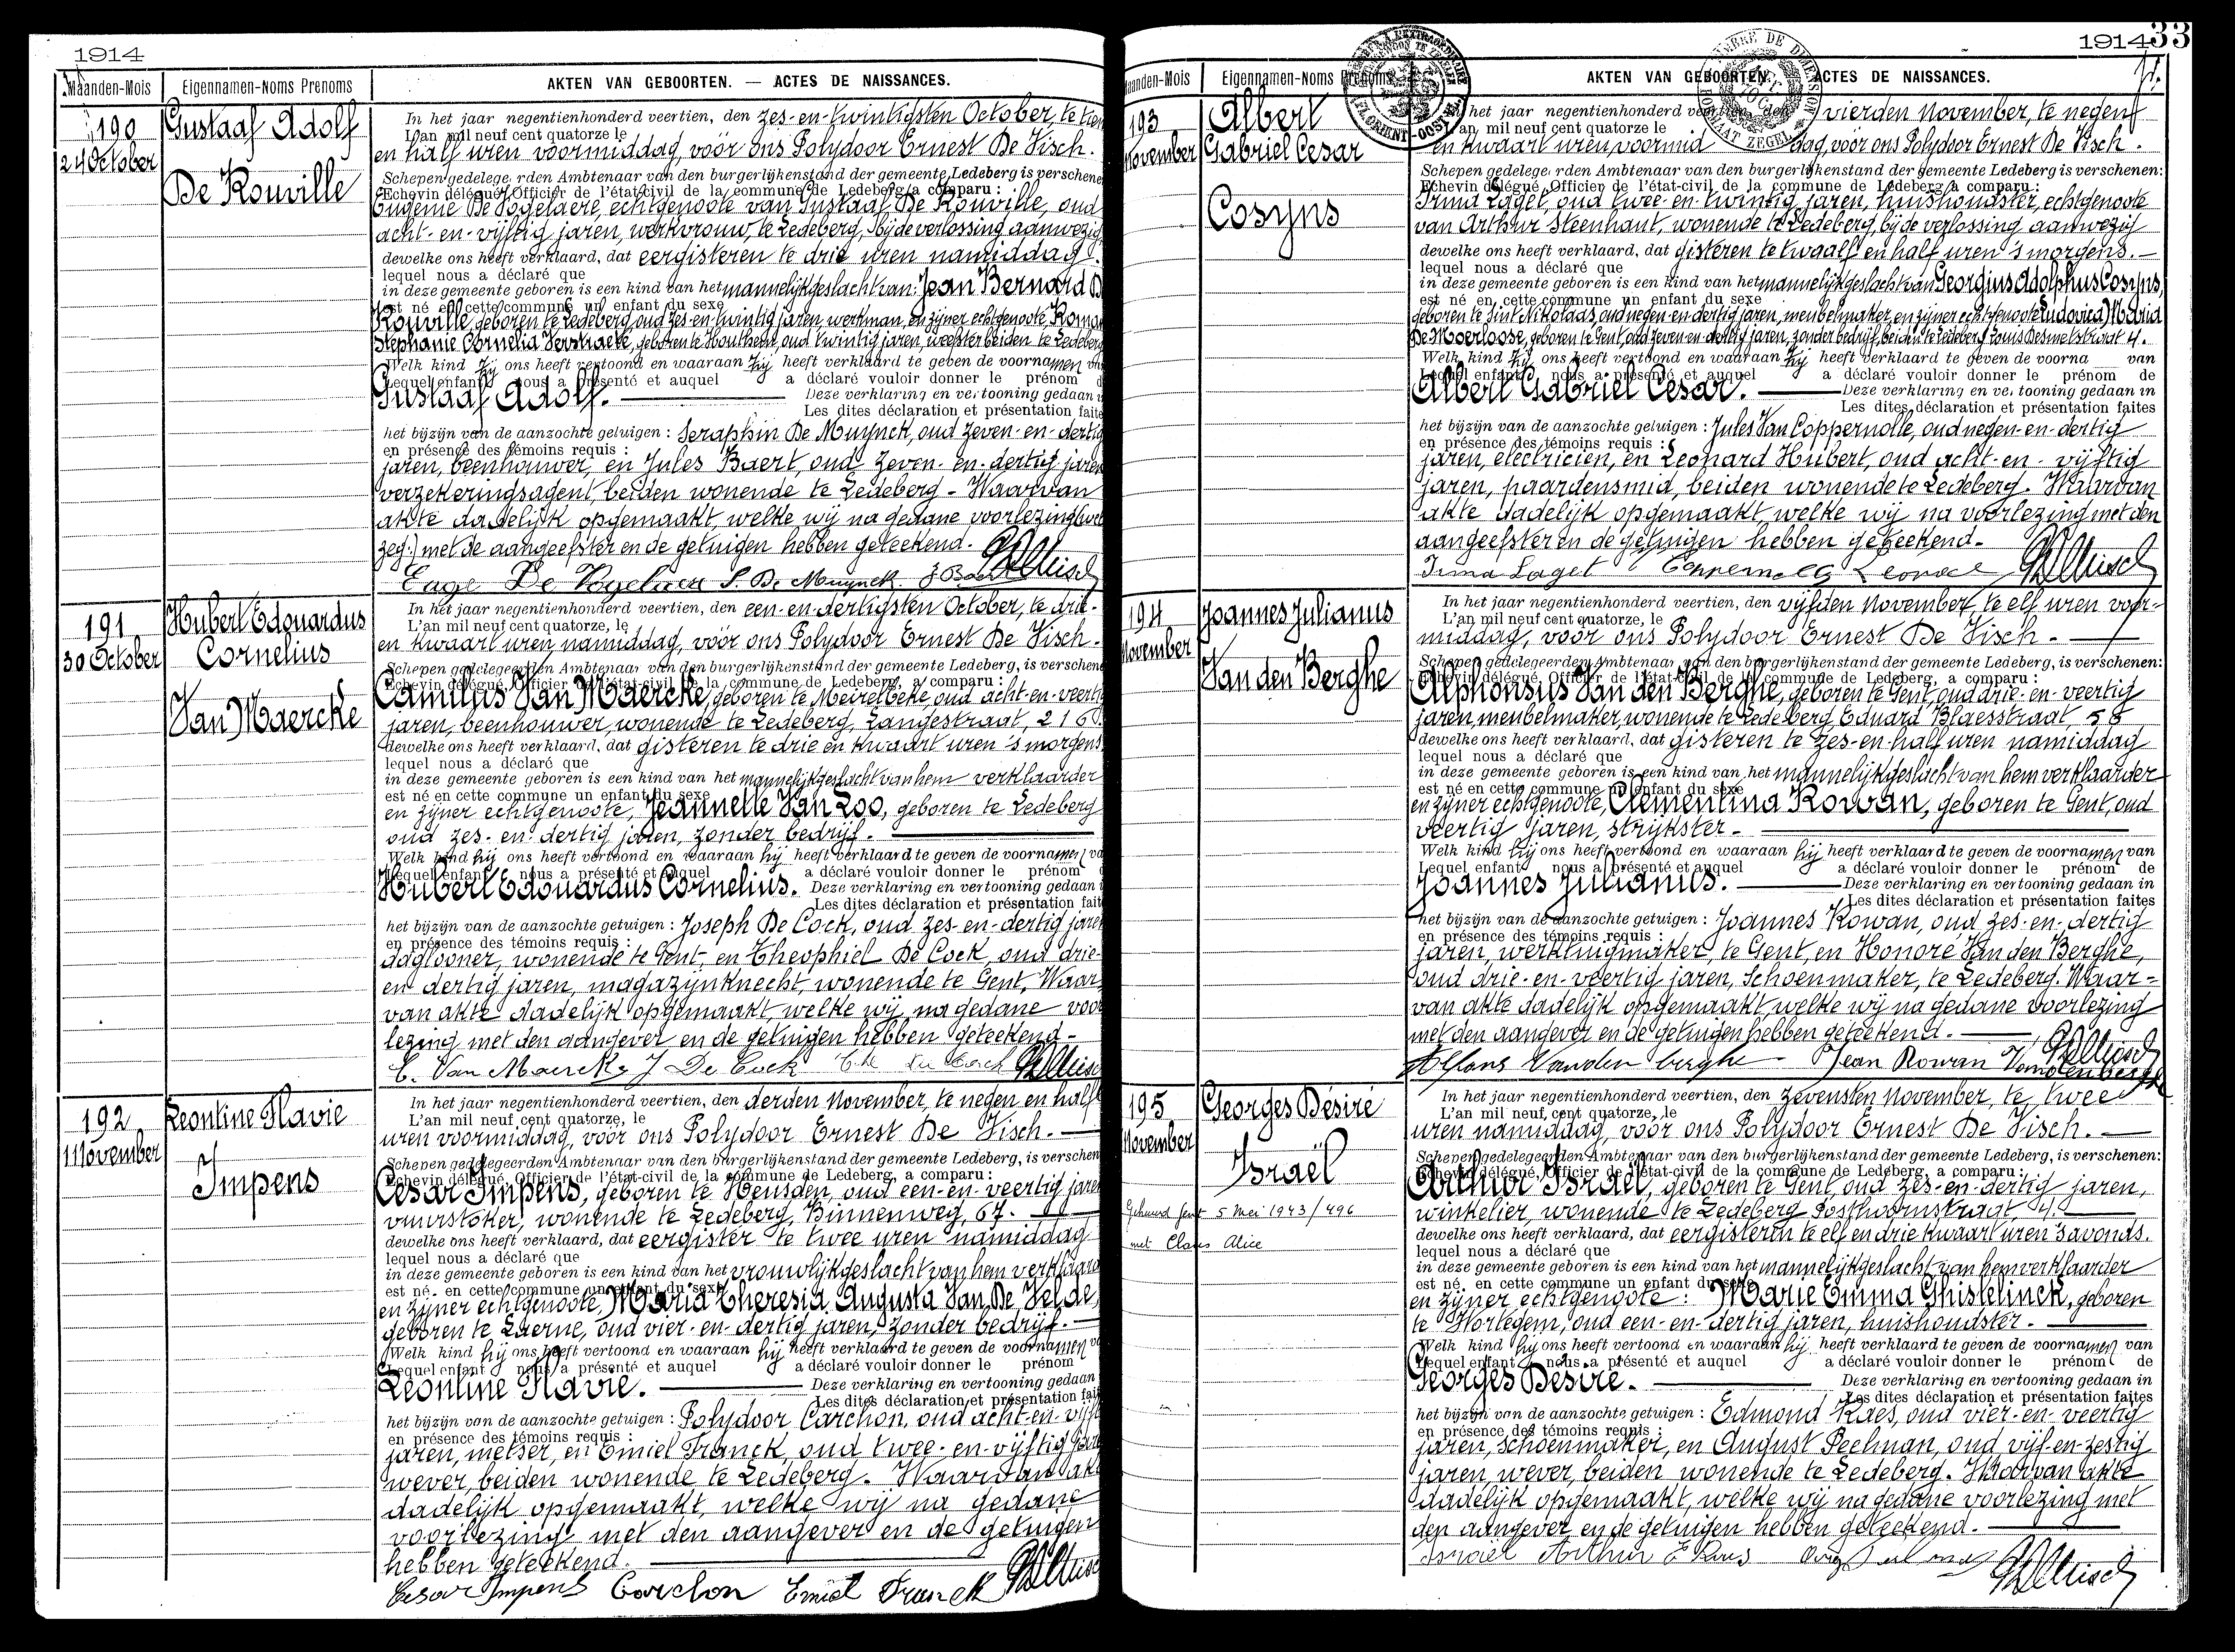 1914
Maanden-Mois
Eigennamen-Noms Prenoms
AKTEN VAN GEBOORTEN. — ACTES DE NAISSANCES.
190
24 October
Gustaaf Adolf
De Rouville
In het jaar negentienhonderd veertien, den zes-en-twintigsten October, te tien
L'an mil neuf cent quatorze le
en half uren voormiddag, vóór ons Polydoor Ernest De Visch.
Schepen gedelege rden Ambtenaar van den burgerlijkenstand der gemeente Ledeberg is verschene
Echevin délégué, Officier de l'état-civil de la commune de Ledeberg a comparu :
Eugenie De Vogelaere, echtgenoote van Gustaaf De Rouville, oud
acht-en-vijftig jaren, werkvrouw, te Ledeberg, bij de verlossing aanwezig
dewelke ons heeft verklaard, dat eergisteren te drie uren namiddag.
lequel nous a déclaré que
in deze gemeente geboren is een kind van het mannelijk geslacht van: Jean Bernard D
est né en cette commune un enfant du sexe
Rouville, geboren te Ledeberg, oud zes-en-twintig jaren, werkman, en zijner echtgenoote, Roma
Stephanie Cornelia Verstraete, geboren te Houthem, oud twintig jaren, weefster beiden te Ledeberg
Welk kind hij ons heeft vertoond en waaraan hij heeft verklaard te geven de voornamen va
Lequel enfant nous a présenté et auquel a déclaré vouloir donner le prénom d
Gustaaf Adolf. — Deze verklaring en vertooning gedaan i
Les dites déclaration et présentation faite
het bijzijn van de aanzochte getuigen : Seraphin De Muynck, oud zeven-en-dertig
en présence des témoins requis :
jaren, beenhouwer, en Jules Baert, oud zeven-en-dertig jaren
verzekeringsagent, beiden wonende te Ledeberg - Waarvan
akte dadelijk opgemaakt, welke wij na gedane voorlezing
zeg:) met de aangeefster en de getuigen hebben geteekend.
Euge De Vogelaere S. De Muynck. J Baert
191
30 October
Hubert Edouardus
Cornelius
Van Maercke
In het jaar negentienhonderd veertien, den een-en-dertigsten October, te drie-
L'an mil neuf cent quatorze, le
en kwaart uren namiddag, vóór ons Polydoor Ernest De Visch.
Schepen gedelegeerden Ambtenaar van den burgerlijkenstand der gemeente Ledeberg, is verschene
Echevin délégué, Officier de l'état-civil de la commune de Ledeberg, a comparu :
Camillus Van Maercke, geboren te Meirelbeke, oud acht-en-veertig
jaren, beenhouwer, wonende te Ledeberg, Langestraat, 216
dewelke ons heeft verklaard, dat gisteren te drie en kwaart uren 's morgens
lequel nous a déclaré que
in deze gemeente geboren is een kind van het mannelijk geslacht van hem verklaarder
est né en cette commune un enfant du sexe
en zijner echtgenoote, Jeannette Van Loo, geboren te Ledeberg
oud zes-en-dertig jaren, zonder bedrijf.
Welk kind hij ons heeft vertoond en waaraan hij heeft verklaard te geven de voornamen va
Lequel enfant nous a présenté et auquel a déclaré vouloir donner le prénom d
Hubert Edouardus Cornelius. Deze verklaring en vertooning gedaan i
Les dites déclaration et présentation fait
het bijzijn van de aanzochte getuigen : Joseph De Cock, oud zes-en-dertig jaren
en présence des témoins requis :
daglooner, wonende te Gent, en Theophiel De Cock, oud drie-
en dertig jaren, magazijnknecht, wonende te Gent, Waar
van akte dadelijk opgemaakt, welke wij na gedane voor
lezing met den aangever en de getuigen hebben geteekend -
C. Van Maercke J De Cock
192
1 November
Leontine Flavie
Impens
In het jaar negentienhonderd veertien, den derden November, te negen en half
L'an mil neuf cent quatorze, le
uren voormiddag, vóór ons Polydoor Ernest De Visch. —
Schepen gedelegeerden Ambtenaar van den burgerlijkenstand der gemeente Ledeberg, is verschen
Echevin délégué, Officier de l'état-civil de la commune de Ledeberg, a comparu :
Cesar Impens, geboren te Heusden, oud een-en-veertig jaren
vuurstoker, wonende te Ledeberg, Binnenweg, 67. —
dewelke ons heeft verklaard, dat eergister te twee uren namiddag
lequel nous a déclaré que
in deze gemeente geboren is een kind van het vrouwlijk geslacht van hem verklaard
est né en cette commune un enfant du sexe
en zijner echtgenoote, Maria Theresia Augusta Van De Velde,
geboren te Laerne, oud vier-en-dertig jaren, zonder bedrijf. —
Welk kind hij ons heeft vertoond en waaraan hij heeft verklaard te geven de voornamen va
Lequel enfant nous a présenté et auquel a déclaré vouloir donner le prénom
Leontine Flavie. — Deze verklaring en vertooning gedaan
Les dites déclaration et présentation fai
het bijzijn van de aanzochte getuigen : Polydoor Carchon, oud acht-en-vijf
en présence des témoins requis :
jaren, metser, en Emiel Franck, oud twee-en-vijftig jare
wever, beiden wonende te Ledeberg. Waarvan ak
dadelijk opgemaakt, welke wij na gedane
voorlezing met den aangever en de getuigen
hebben geteekend.
Cesar Impens Carchon Emiel Franck
1914
33
Maanden-Mois
Eigennamen-Noms Prenoms
AKTEN VAN GEBOORTEN. ACTES DE NAISSANCES.
193
November
Albert
Gabriel Cesar
Cosyns
het jaar negentienhonderd veertien, den vierden November, te negen
L'an mil neuf cent quatorze le
en kwaart uren voormiddag, vóór ons Polydoor Ernest De Visch.
Schepen gedelege rden Ambtenaar van den burgerlijkenstand der gemeente Ledeberg is verschenen:
Echevin délégué, Officier de l'état-civil de la commune de Ledeberg a comparu :
Irma Laget, oud twee-en-twintig jaren, huishoudster, echtgenoote
van Arthur Steenhaut, wonende te Ledeberg, bij de verlossing aanwezig
dewelke ons heeft verklaard, dat gisteren te twaalf en half uren 's morgens. —
lequel nous a déclaré que
in deze gemeente geboren is een kind van het mannelijk geslacht van Georgius Adolphus Cosyns,
est né en cette commune un enfant du sexe
geboren te Sint Nikolaas, oud negen-en-dertig jaren, meubelmaker, en zijner echtgenoote Ludovica Maria
De Moerloose, geboren te Gent, oud zeven-en-dertig jaren, zonder bedrijf, beiden te Ledeberg Louis Desmetstraat 4.
Welk kind hij ons heeft vertoond en waaraan hij heeft verklaard te geven de voorna van
Lequel enfant nous a présenté et auquel a déclaré vouloir donner le prénom de
Albert Gabriel Cesar. — Deze verklaring en vertooning gedaan in
Les dites déclaration et présentation faites
het bijzijn van de aanzochte getuigen : Jules Van Coppernolle, oud negen-en-dertig
en présence des témoins requis :
jaren, electricien, en Leonard Hubert, oud acht-en-vijftig
jaren, paardensmid, beiden wonende te Ledeberg. Waarvan
akte dadelijk opgemaakt, welke wij na voorlezing met den
aangeefster en de getuigen hebben geteekend.
Irma Laget
194
November
Joannes Julianus
Van den Berghe
In het jaar negentienhonderd veertien, den vijfden November, te elf uren voor-
L'an mil neuf cent quatorze, le
middag, vóór ons Polydoor Ernest De Visch. —
Schepen gedelegeerden Ambtenaar van den burgerlijkenstand der gemeente Ledeberg, is verschenen:
Echevin délégué, Officier de l'état-civil de la commune de Ledeberg, a comparu :
Alphonsus Van den Berghe, geboren te Gent, oud drie-en-veertig
jaren, meubelmaker, wonende te Ledeberg Eduard Blaesstraat,
dewelke ons heeft verklaard, dat gisteren te zes-en-half uren namiddag
lequel nous a déclaré que
in deze gemeente geboren is een kind van het mannelijk geslacht van hem verklaarder
est né en cette commune un enfant du sexe
en zijner echtgenoote, Clementina Rowan, geboren te Gent, oud
veertig jaren, strijkster —
Welk kind hij ons heeft vertoond en waaraan hij heeft verklaard te geven de voornamen van
Lequel enfant nous a présenté et auquel a déclaré vouloir donner le prénom de
Joannes Julianus. — Deze verklaring en vertooning gedaan in
Les dites déclaration et présentation faites
het bijzijn van de aanzochte getuigen : Joannes Rowan, oud zes-en-dertig
en présence des témoins requis :
jaren, werktuigmaker, te Gent, en Honoré Van den Berghe,
oud drie-en-veertig jaren, schoenmaker, te Ledeberg. Waar-
van akte dadelijk opgemaakt, welke wij na gedane voorlezing
met den aangever en de getuigen hebben geteekend. —
Alfons Vanden berghe Jean Rowan Vandenberghe
195
November
Georges Désiré
Israël
Gehuwd Gent 5 Mei 1943/496
met Claus Alice
In het jaar negentienhonderd veertien, den zevensten November, te twee
L'an mil neuf cent quatorze, le
uren namiddag, vóór ons Polydoor Ernest De Visch. —
Schepen gedelegeerden Ambtenaar van den burgerlijkenstand der gemeente Ledeberg, is verschenen:
Echevin délégué, Officier de l'état-civil de la commune de Ledeberg, a comparu :
Arthur Israël, geboren te Gent, oud zes-en-dertig jaren,
winkelier, wonende te Ledeberg Posthoornstraat, 4. —
dewelke ons heeft verklaard, dat eergisteren te elf en drie kwaart uren 's avonds.
lequel nous a déclaré que
in deze gemeente geboren is een kind van het mannelijk geslacht van hem verklaarder
est né en cette commune un enfant du sexe
en zijner echtgenoote: Marie Emma Ghistelinck, geboren
te Wortegem, oud een-en-dertig jaren, huishoudster. —
Welk kind hij ons heeft vertoond en waaraan hij heeft verklaard te geven de voornamen van
Lequel enfant nous a présenté et auquel a déclaré vouloir donner le prénom de
Georges Désiré. — Deze verklaring en vertooning gedaan in
Les dites déclaration et présentation faites
het bijzijn van de aanzochte getuigen : Edmond Raes, oud vier-en-veertig
en présence des témoins requis :
jaren, schoenmaker, en August Peelman, oud vijf-en-zestig
jaren, wever, beiden wonende te Ledeberg. Waarvan akte
dadelijk opgemaakt, welke wij na gedane voorlezing met
den aangever en de getuigen hebben geteekend. —
Israël Arthur E Raes